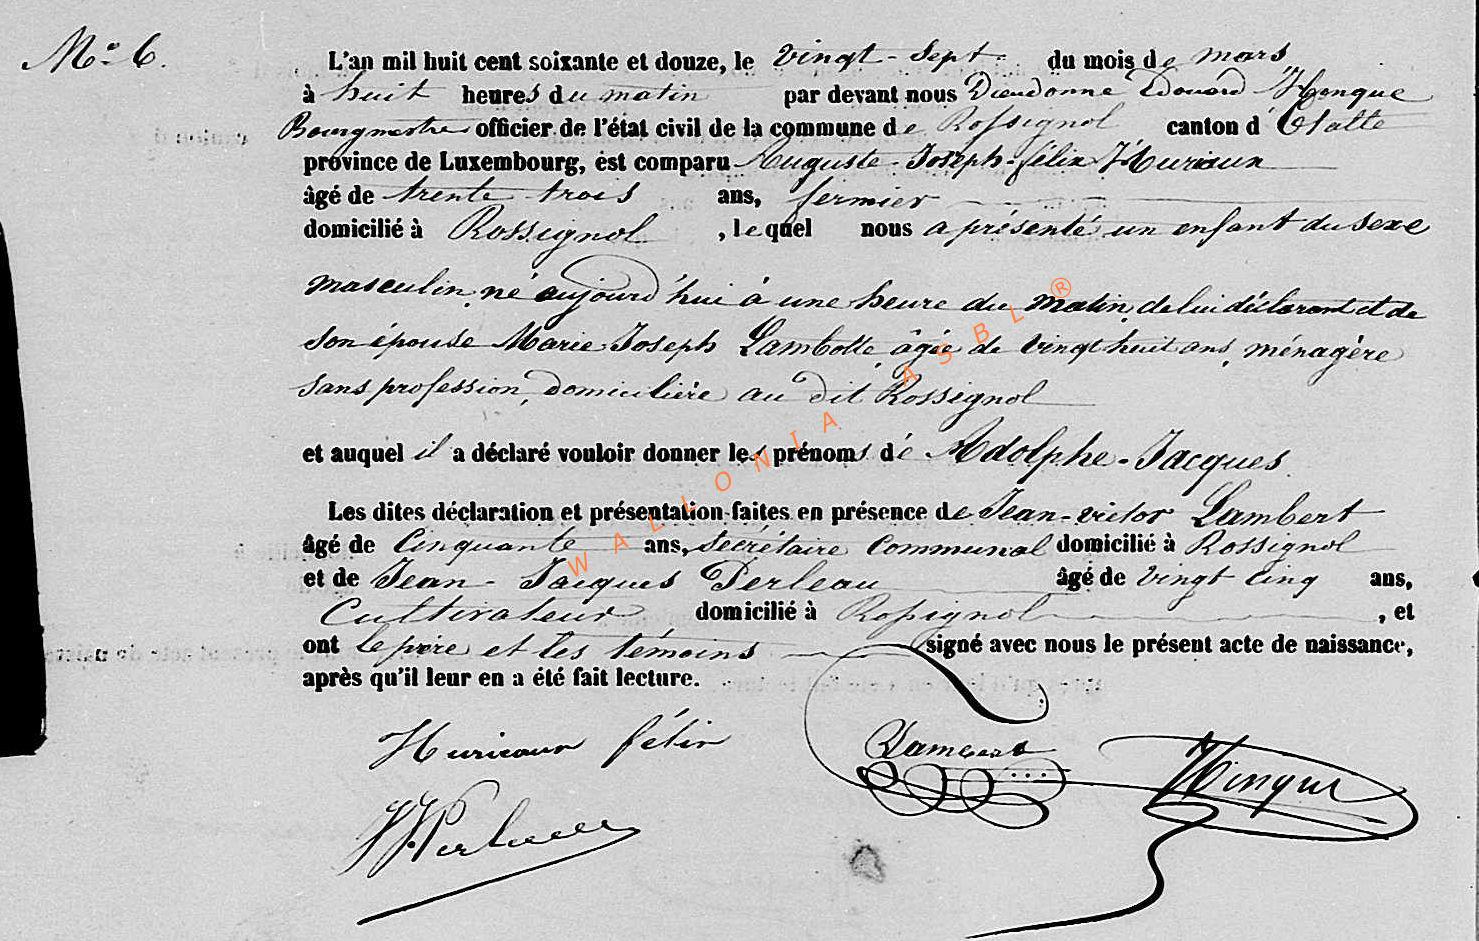 N° 6.
L'an mil huit cent soixante et douze, le vingt-sept du mois de mars
à huit heures du matin par devant nous Dieudonné Edouard Hinque
Bourgmestre officier de l'état civil de la commune de Rossignol canton d'Etalle
province de Luxembourg, est comparu Auguste-Joseph-félix Huriaux
âgé de trente trois ans, fermier
domicilié à Rossignol, lequel nous a présenté un enfant du sexe
masculin, né aujourd'hui à une heure du matin, de lui déclarant et de
son épouse Marie Joseph Lambotte, âgée de vingt huit ans, ménagère
sans profession, domiciliére au dit Rossignol
et auquel il a déclaré vouloir donner les prénoms de Adolphe-Jacques
Les dites déclaration et présentation faites en présence de Jean-victor Lambert
âgé de Cinquante ans, secrétaire Communal domicilié à Rossignol
et de Jean-Jacques Perleau âgé de vingt cinq ans,
Cultivateur domicilié à Rossignol, et
ont le père et les témoins signé avec nous le présent acte de naissance,
après qu'il leur en a été fait lecture.
Huriaux félix Lambert Hinque
JJPerleau
WALLONIA ASBL ®